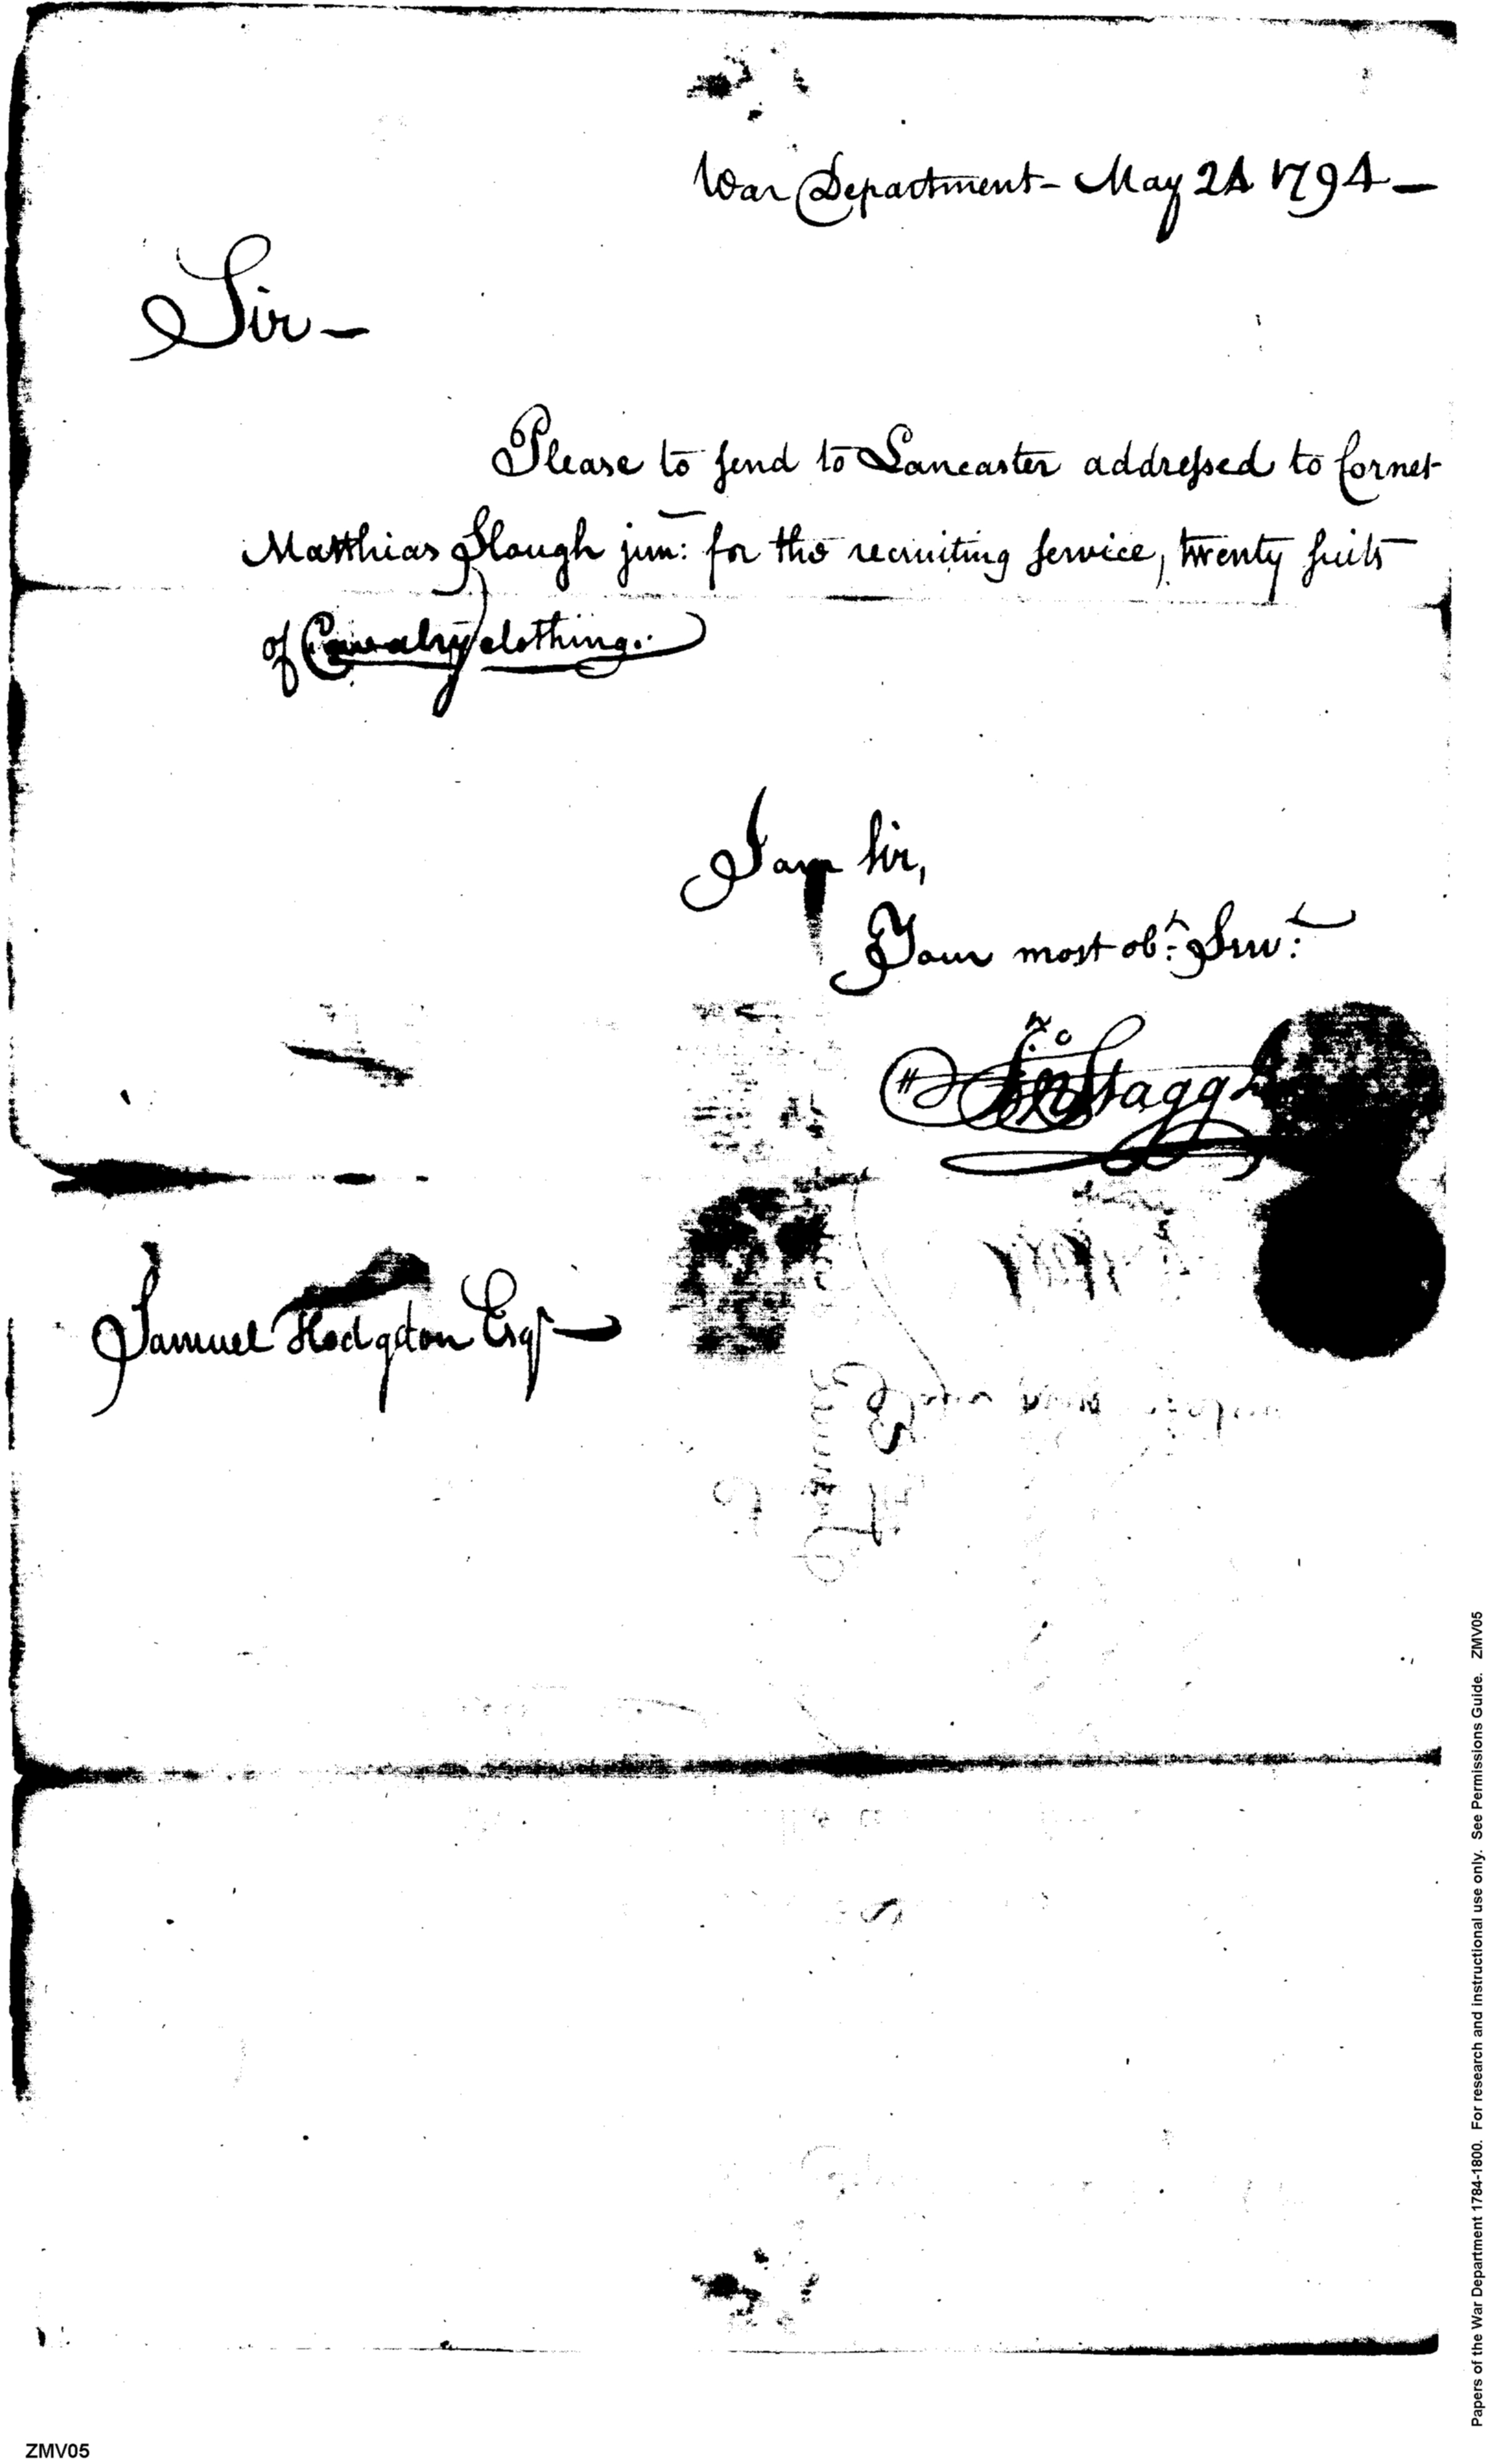 War Department - May 24 1794 -
Sir -
Please to send to Lancaster addressed to Cornet
Matthias Slough jun: for the recruiting service, twenty suits
of Cavalry clothing.
I am Sir,
Your most obt. Servt.
Jno Stagg
Samuel Hodgdon Esqr
Papers of the War Department 1784-1800. For research and instructional use only. See Permissions Guide. ZMV05
ZMV05